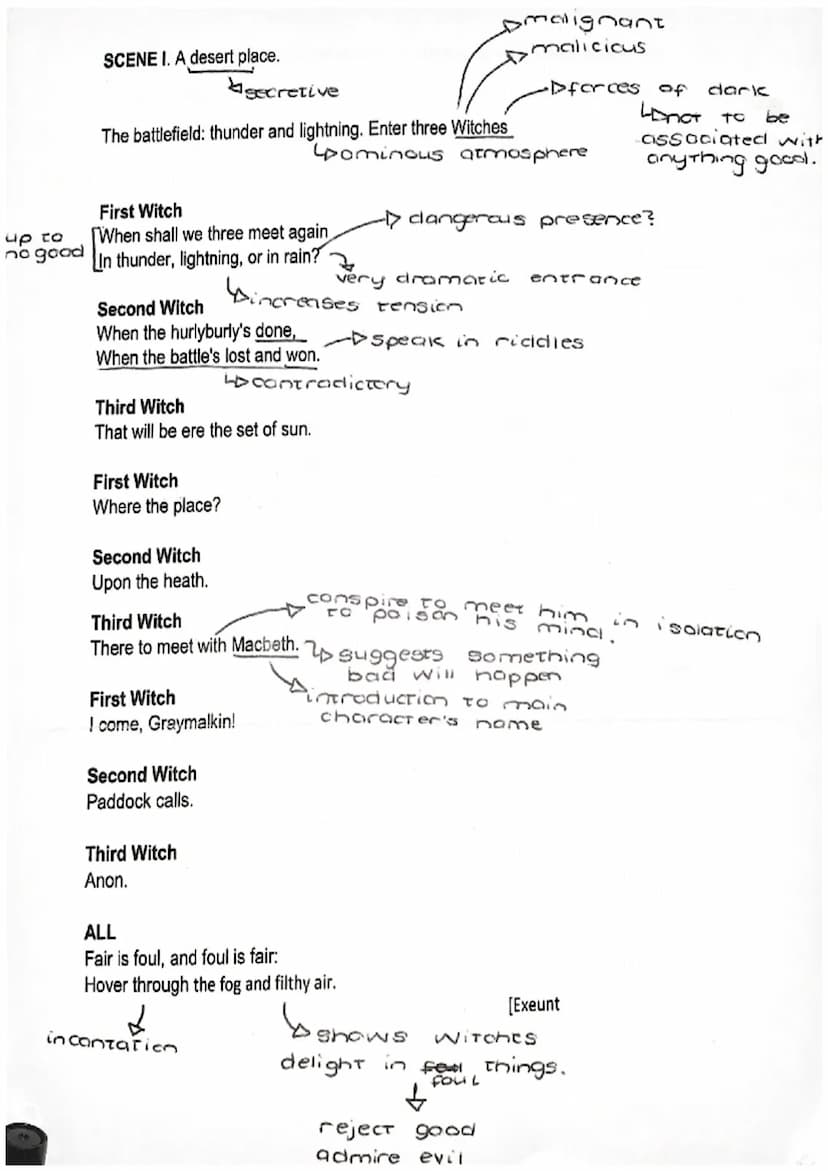 malignant
SCENE I. A desert place.
malicicus
secretive
forces of dark
not to be
associated with
anything good.
The battlefield: thunder and lightning. Enter three Witches
ominous atmosphere
First Witch
dangerous presence?
up to
no good
When shall we three meet again
In thunder, lightning, or in rain?
very dramatic entrance
increases tension
Second Witch
When the hurlyburly's done,
speak in riddles
When the battle's lost and won.
contradictory
Third Witch
That will be ere the set of sun.
First Witch
Where the place?
Second Witch
Upon the heath.
conspire to meet him in isolation
to poison his mind.
Third Witch
There to meet with Macbeth.
suggests something
bad will happen
introduction to main
character's name
First Witch
I come, Graymalkin!
Second Witch
Paddock calls.
Third Witch
Anon.
ALL
Fair is foul, and foul is fair:
Hover through the fog and filthy air.
[Exeunt
incantation
shows witches
delight in foul things.
reject good
admire evil